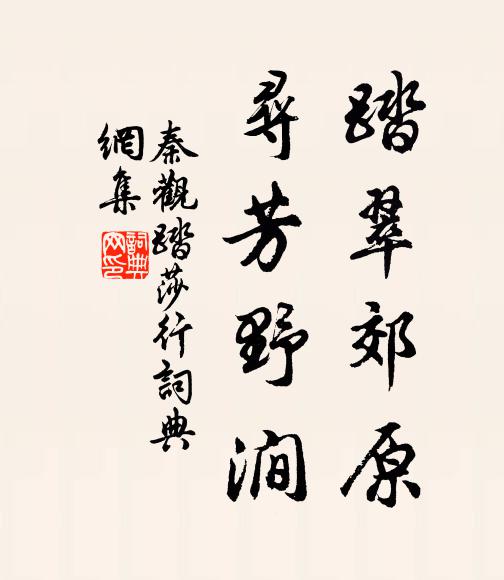 踏翠郊原
尋芳野澗
秦觀踏莎行詞典
網集
詞典
网印